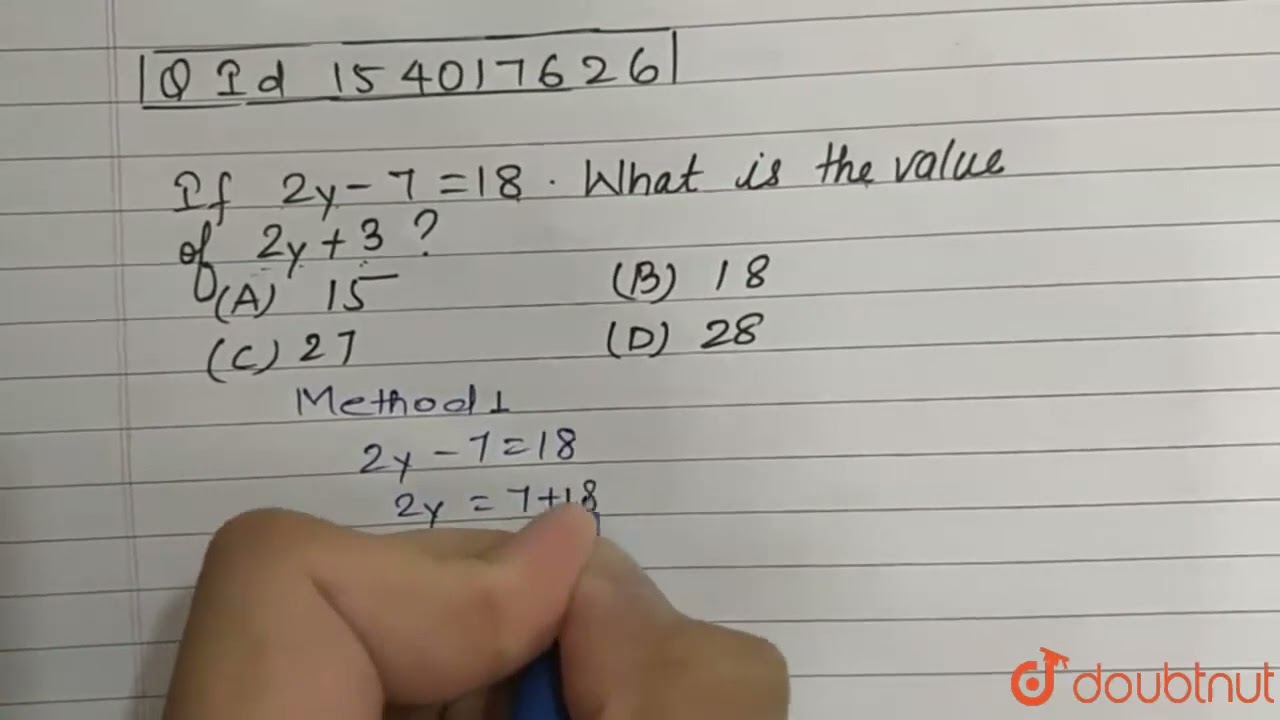 Q Id 154017626
If 2y - 7 = 18. What is the value
of 2y + 3 ?
(A) 15 (B) 18
(C) 27 (D) 28
Method 1
2y - 7 = 18
2y = 7 + 18
doubtnut